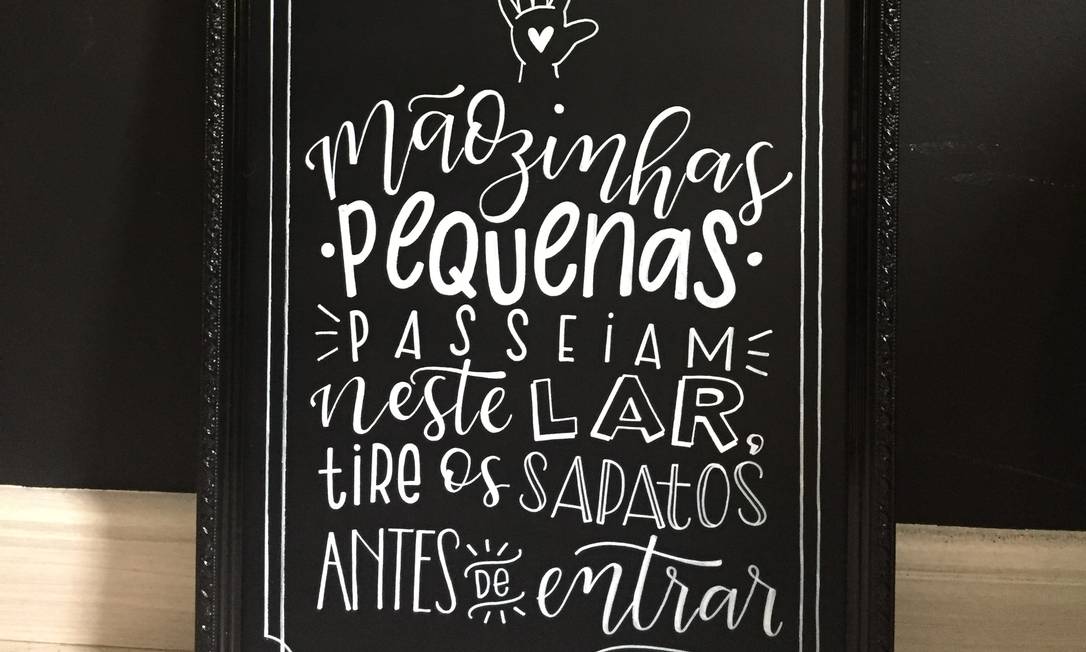 mãozinhas
pequenas
PASSEiAM
neste LAR,
tiRe os SAPAtOS
ANTES DE entrar